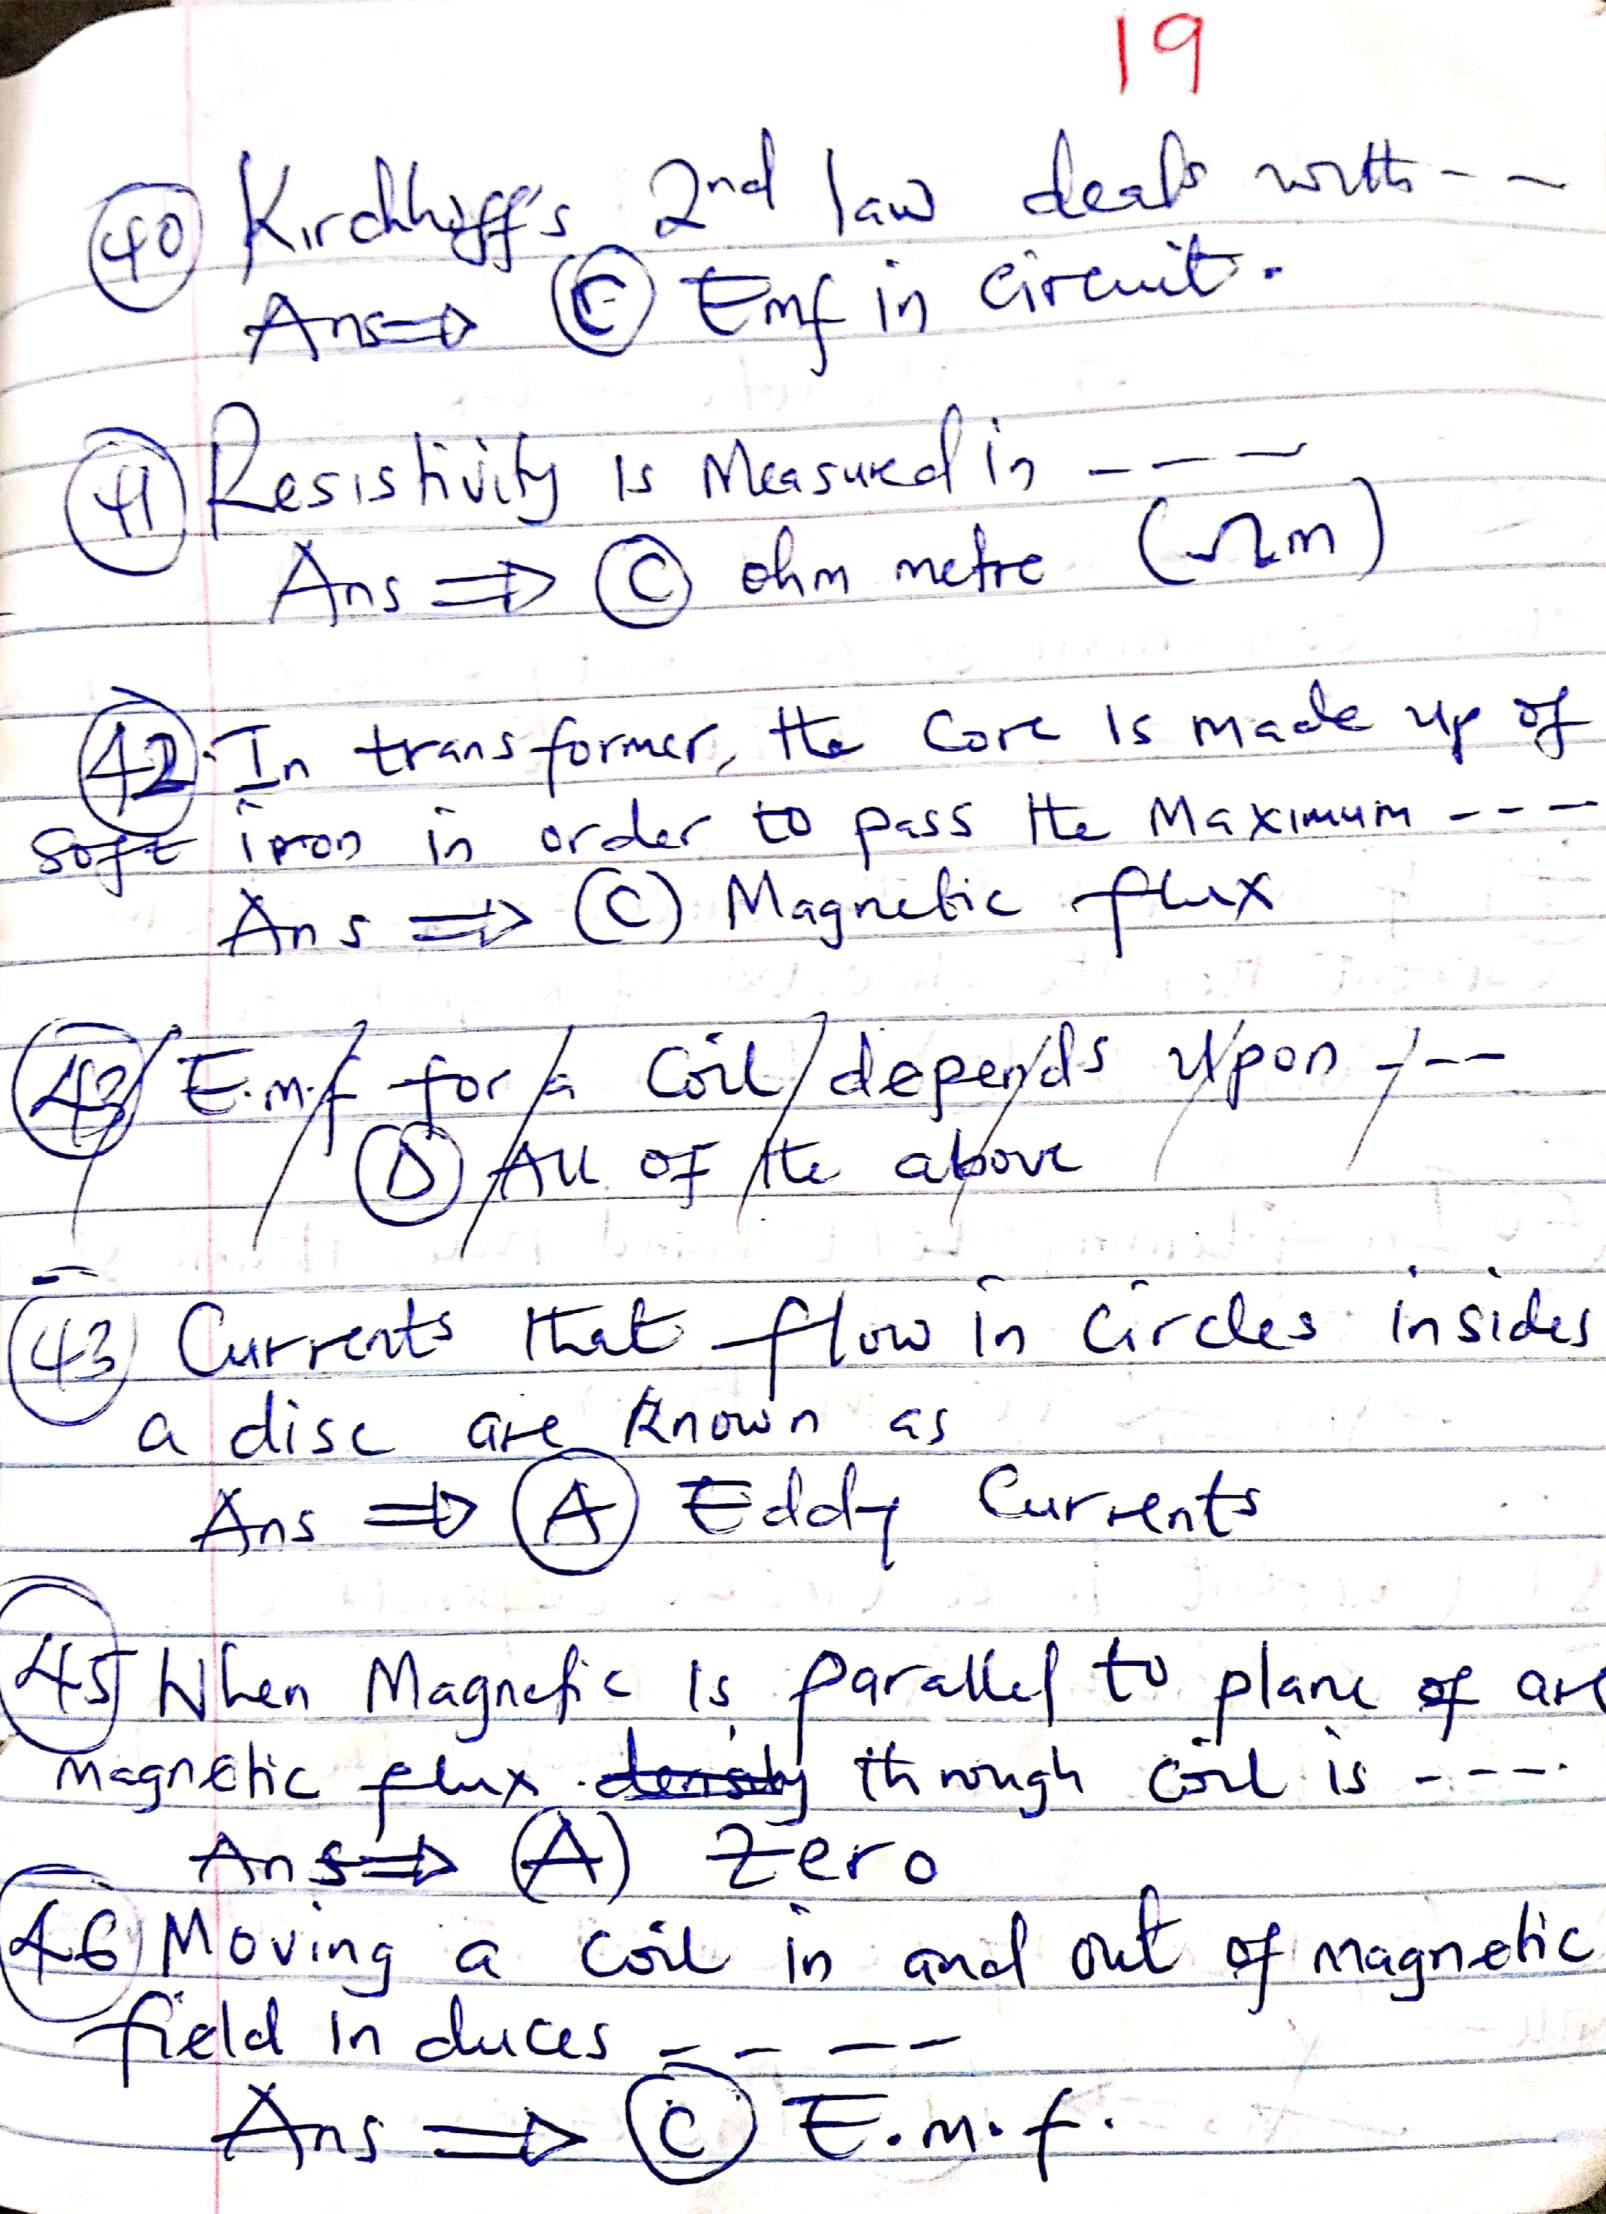 19
40 Kirchhoff's 2nd law deals with - -
Ans ⇒ C Emf in circuit.
41 Resistivity is Measured in - - -
Ans ⇒ C ohm metre (Ωm)
42. In transformer, the core is made up of
soft iron in order to pass the Maximum - - -
Ans ⇒ (C) Magnetic flux
43 E.m.f for a coil depends upon - - -
D All of the above
43 Currents that flow in circles insides
a disc are known as
Ans ⇒ A Eddy Currents
45 When Magnetic is parallel to plane of are
magnetic flux density through coil is - - - -.
Ans ⇒ (A) Zero
46 Moving a coil in and out of magnetic
field induces - - - -
Ans ⇒ C E.m.f.